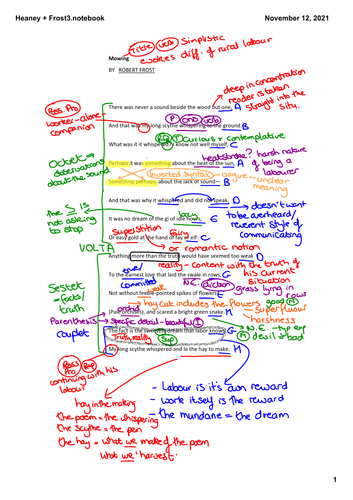 Heaney + Frost3.notebook November 12, 2021
Title verb simplistic
evokes diff. of rural labour
Mowing
BY ROBERT FROST
deep in concentration
reader is taken
straight into the
situ.
Poss. Pro
worker - alone
companion
There was never a sound beside the wood but one, A
P ono verb
And that was my long scythe whispering to the ground. B
Rep curious + contemplative
What was it it whispered? I know not well myself; C
heatstroke? harsh nature
of being a
labourer
Octet →
observations
about the sound
Perhaps it was something about the heat of the sun, A
(inverted syntax) - vague - unclear
meaning
Something, perhaps, about the lack of sound— B
And that was why it whispered and did not speak. D → doesn't want
to be overheard/
reverent style of
communicating
the S is
not asking
to stop
lazy
It was no dream of the gift of idle hours, E
superstition Fairy
Or easy gold at the hand of fay or elf: C
→ or romantic notion
VOLTA
Anything more than the truth would have seemed too weak D
reality - content with the truth of
his current
situation
To the earnest love that laid the swale in rows, C
committed
N.E. diction grass lying in
rows
Sestet
- facts/
truth
Not without feeble-pointed spikes of flowers E
→ hay cut includes the flowers good M
Parenthesis
(Pale orchises), and scared a bright green snake. H
superfluous
harshness
→ specific detail - beautiful I
N.E. - typ exp
M devil + bad
Couplet
The fact is the sweetest dream that labor knows. G
Truth, reality Sup
My long scythe whispered and le the hay to make. H
Poss Pro Rep
continuing with his
labour
hay in the making
the poem = the whispering
the scythe = the pen
the hay = what we make of the poem
what we 'harvest'.
- Labour is it's own reward
- work itself is the reward
- the mundane = the dream
1